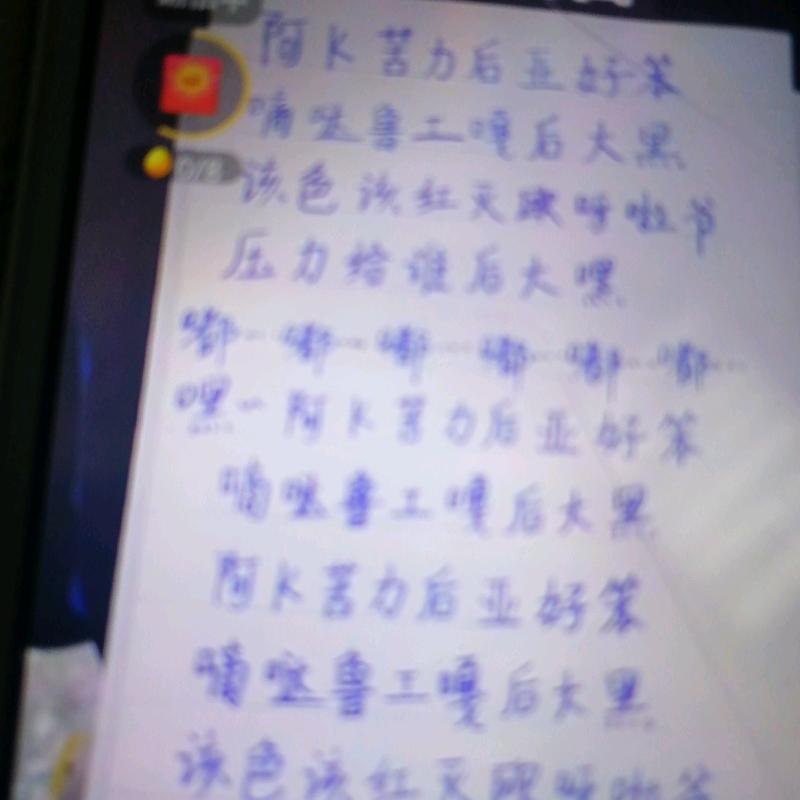 阿K苦力后亚好笨
嘀哒鲁工嘎后大黑
0/8
该色该红天跛呼啦爷
压力给谁后大嘿
嘟…嘟…嘟…嘟…嘟…嘟…
嘿…阿K苦力后亚好笨
嘀哒鲁工嘎后大黑
阿K苦力后亚好笨
嘀哒鲁工嘎后大黑
该色该红天跛呼啦爷